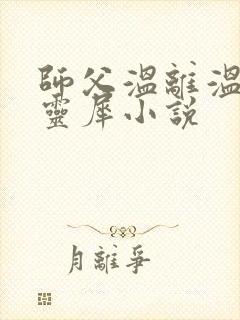 師父溫離溫
靈犀小說
月離爭